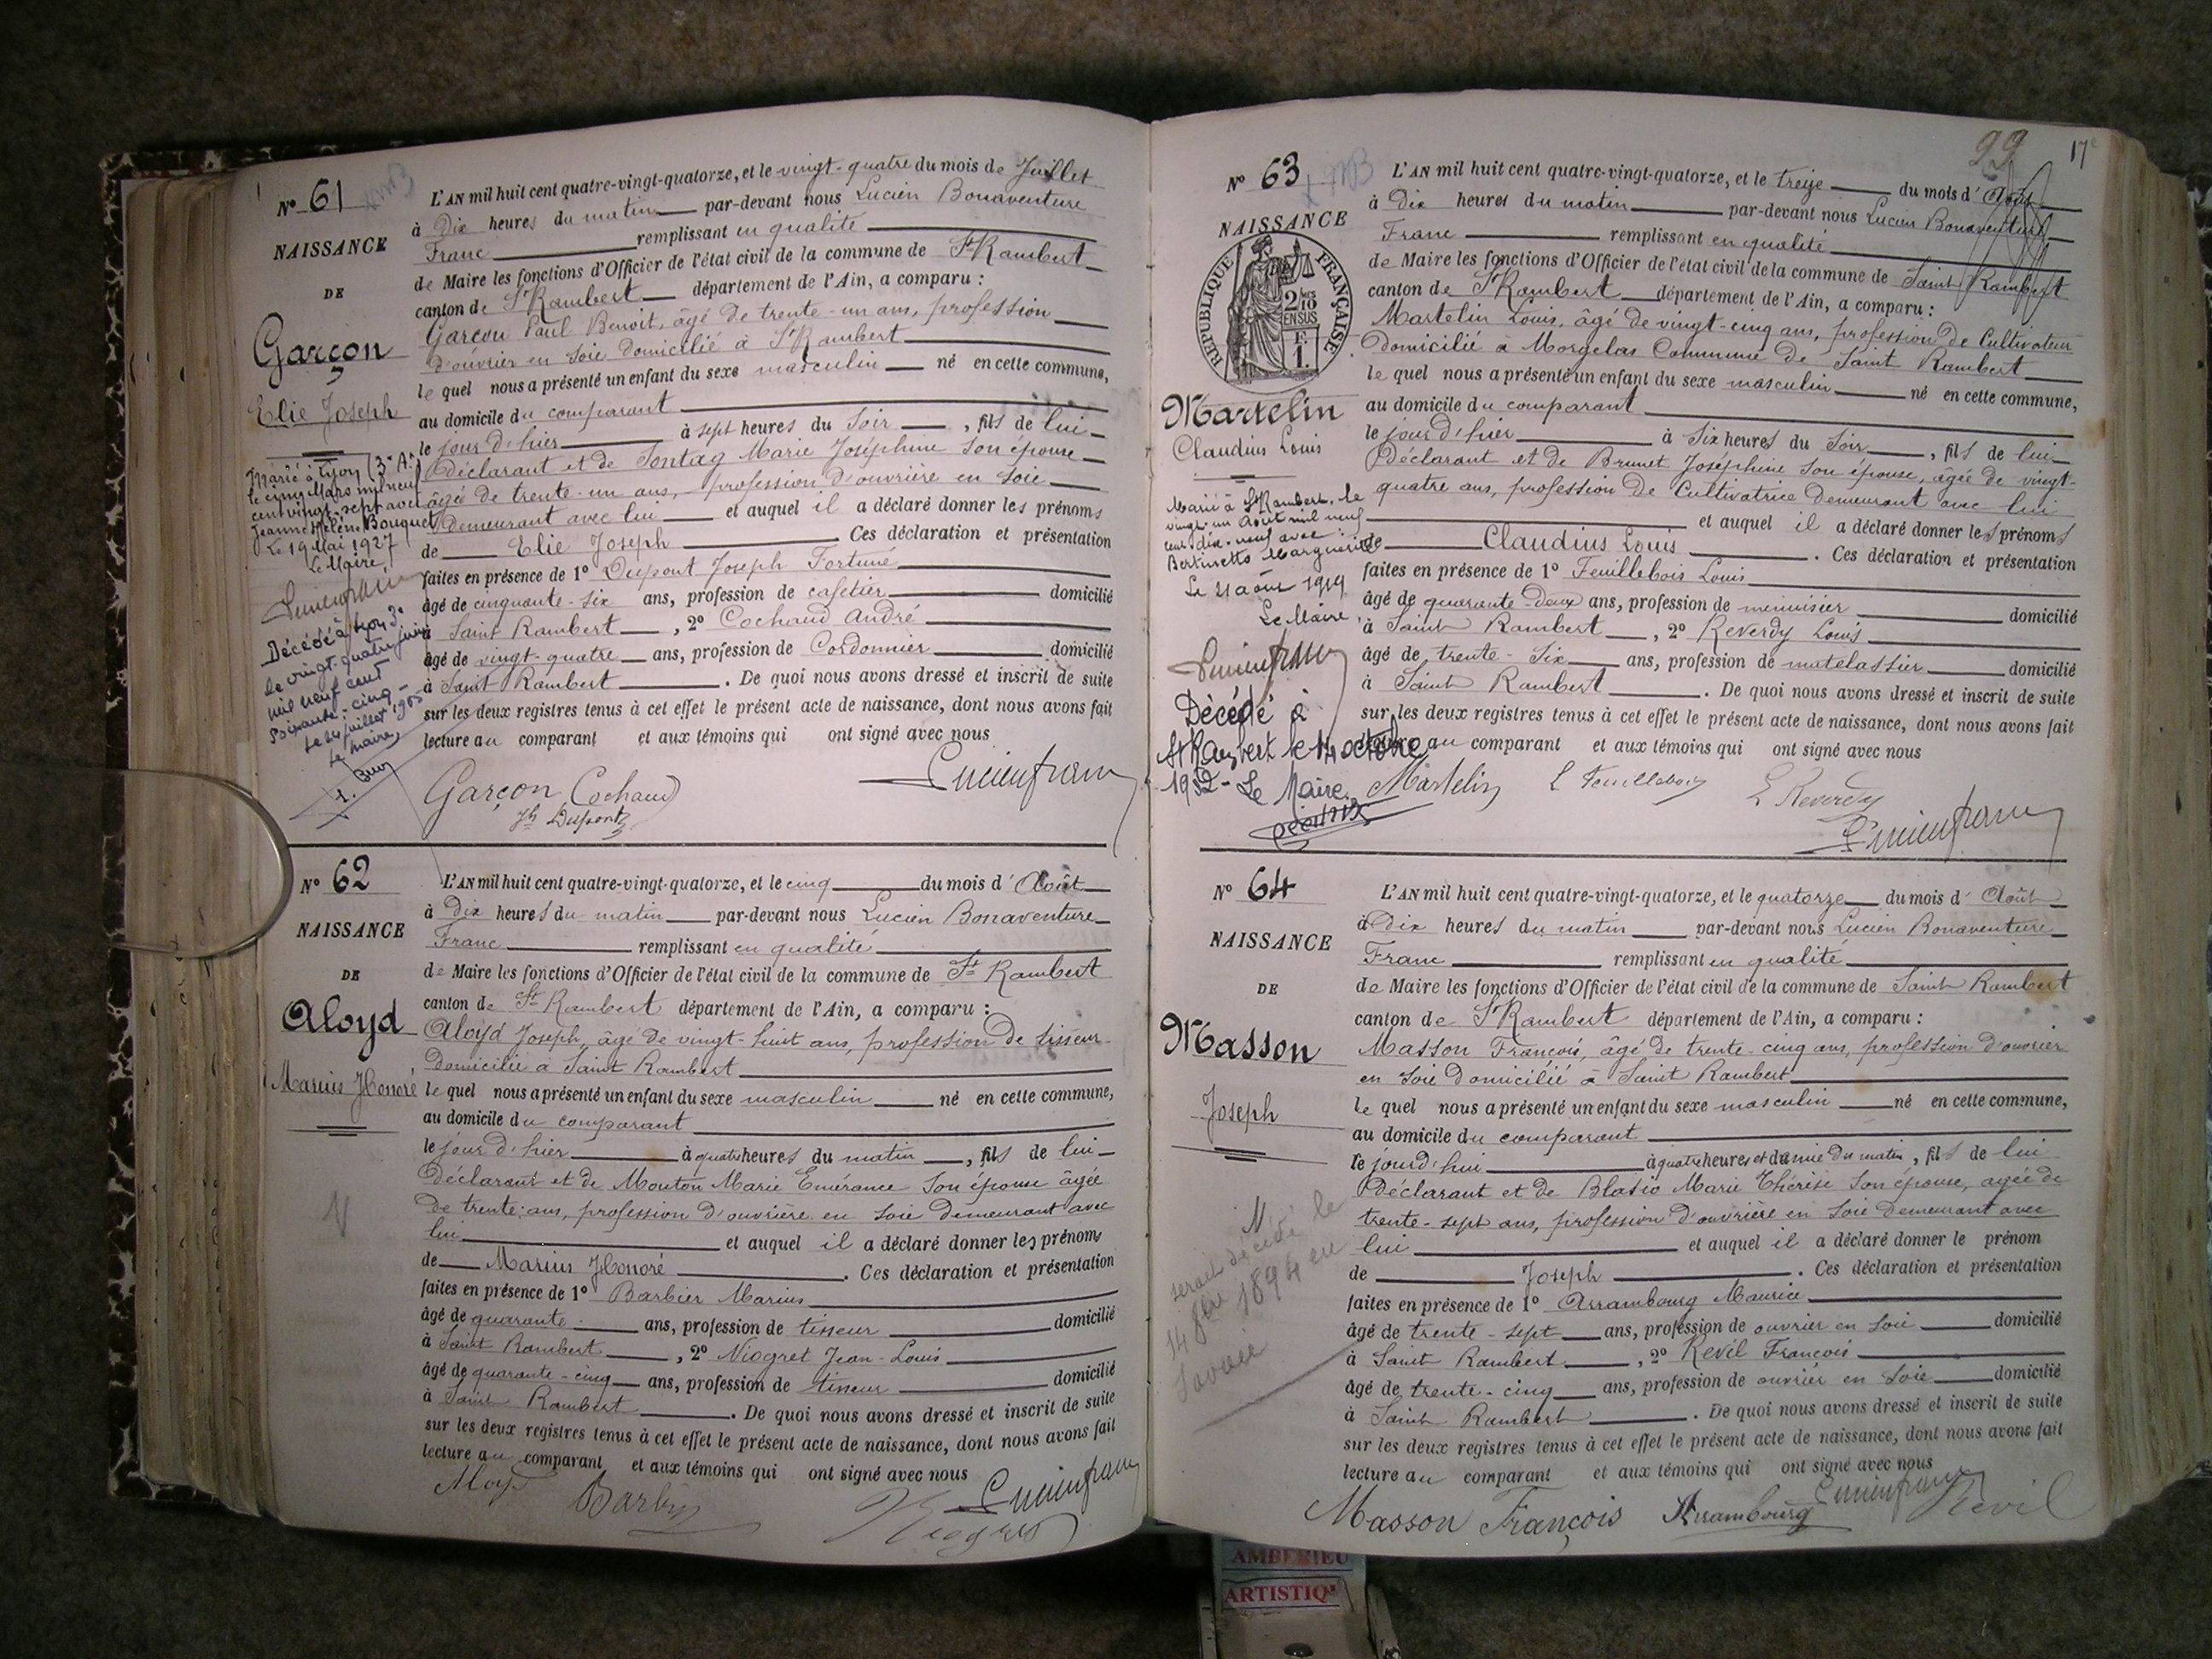 N° 61
NAISSANCE
DE
Garçon
Elie Joseph
Marié à Lyon (3e Ar.)
le cinq Mars mil neuf
cent vingt-sept avec
Jeanne Hélène Bouquet
Le 19 Mai 1927
Le Maire,
Lucien franc
Décédé à Lyon 3e
le vingt-quatre juin
mil neuf cent
soixante-cinq -
le juillet 1965
Le maire,
L'AN mil huit cent quatre-vingt-quatorze, et le vingt-quatre du mois de Juillet
à Dix heures du matin par-devant nous Lucien Bonaventure
Franc remplissant en qualité
de Maire les fonctions d'Officier de l'état civil de la commune de St Rambert
canton de St Rambert département de l'Ain, a comparu :
Garçon Paul Benoit, âgé de trente-un ans, profession
d'ouvrier en soie domicilié à St Rambert
le quel nous a présenté un enfant du sexe masculin né en cette commune,
au domicile du comparant
le jour d'hier à sept heures du soir, fils de lui
Déclarant et de Sontag Marie Joséphine son épouse
âgée de trente-un ans, profession d'ouvrière en soie
demeurant avec lui et auquel il a déclaré donner les prénoms
de Elie Joseph Ces déclaration et présentation
faites en présence de 1° Dupont Joseph Fortuné
âgé de cinquante-six ans, profession de cafetier domicilié
à Saint Rambert, 2° Cochaud André
âgé de vingt-quatre ans, profession de Cordonnier domicilié
à Saint Rambert. De quoi nous avons dressé et inscrit de suite
sur les deux registres tenus à cet effet le présent acte de naissance, dont nous avons fait
lecture au comparant et aux témoins qui ont signé avec nous
Garçon Cochaud Lucien franc
Jh Dupont
N° 62
NAISSANCE
DE
Aloyd
Marius Honoré
N
L'AN mil huit cent quatre-vingt-quatorze, et le cinq du mois d'Août
à Dix heures du matin par-devant nous Lucien Bonaventure
Franc remplissant en qualité
de Maire les fonctions d'Officier de l'état civil de la commune de St Rambert
canton de St Rambert département de l'Ain, a comparu :
Aloyd Joseph, âgé de vingt-huit ans, profession de tisseur
Domicilié à Saint Rambert
le quel nous a présenté un enfant du sexe masculin né en cette commune,
au domicile du comparant
le jour d'hier à quatre heures du matin, fils de lui
Déclarant et de Mouton Marie Emérance son épouse âgée
de trente ans, profession d'ouvrière en soie demeurant avec
lui et auquel il a déclaré donner les prénoms
de Marius Honoré. Ces déclaration et présentation
faites en présence de 1° Barbier Marius
âgé de quarante ans, profession de tisseur domicilié
à Saint Rambert, 2° Niogret Jean-Louis
âgé de quarante-cinq ans, profession de tisseur domicilié
à Saint Rambert. De quoi nous avons dressé et inscrit de suite
sur les deux registres tenus à cet effet le présent acte de naissance, dont nous avons fait
lecture au comparant et aux témoins qui ont signé avec nous
Aloyd Barbier Niogret Lucien franc
99 17e
N° 63
NAISSANCE
RÉPUBLIQUE FRANÇAISE
2/10 EN SUS
F. 1.
Martelin
Claudius Louis
Marié à St Rambert, le
vingt-un Août mil neuf
cent dix-neuf avec
Bertinetto Marguerite
Le 21 août 1919
Le Maire,
Lucien franc
Décédé à
St Rambert le 14 octobre
1952 - Le Maire,
L'AN mil huit cent quatre-vingt-quatorze, et le treize du mois d'Août
à Dix heures du matin par-devant nous Lucien Bonaventure
Franc remplissant en qualité
de Maire les fonctions d'Officier de l'état civil de la commune de Saint Rambert
canton de St Rambert département de l'Ain, a comparu :
Martelin Louis, âgé de vingt-cinq ans, profession de Cultivateur
Domicilié à Morgelas Commune de Saint Rambert
le quel nous a présenté un enfant du sexe masculin né en cette commune,
au domicile du comparant
le jour d'hier à six heures du soir, fils de lui
Déclarant et de Brunet Joséphine son épouse, âgée de vingt-
quatre ans, profession de Cultivatrice demeurant avec lui
et auquel il a déclaré donner les prénoms
de Claudius Louis. Ces déclaration et présentation
faites en présence de 1° Feuillebois Louis
âgé de quarante-deux ans, profession de menuisier domicilié
à Saint Rambert, 2° Reverdy Louis
âgé de trente-six ans, profession de matelassier domicilié
à Saint Rambert. De quoi nous avons dressé et inscrit de suite
sur les deux registres tenus à cet effet le présent acte de naissance, dont nous avons fait
lecture au comparant et aux témoins qui ont signé avec nous
Martelin L Feuillebois L Reverdy
Lucien franc
N° 64
NAISSANCE
DE
Masson
Joseph
N
serait décédé le
14 8bre 1894 en
Savoie
L'AN mil huit cent quatre-vingt-quatorze, et le quatorze du mois d'Août
à Dix heures du matin par-devant nous Lucien Bonaventure
Franc remplissant en qualité
de Maire les fonctions d'Officier de l'état civil de la commune de Saint Rambert
canton de St Rambert département de l'Ain, a comparu :
Masson François, âgé de trente-cinq ans, profession d'ouvrier
en soie domicilié à Saint Rambert
le quel nous a présenté un enfant du sexe masculin né en cette commune,
au domicile du comparant
le jourd'hui à quatre heures et demie du matin, fils de lui
Déclarant et de Blasio Marie Thérèse son épouse, agée de
trente-sept ans, profession d'ouvrière en soie demeurant avec
lui et auquel il a déclaré donner le prénom
de Joseph. Ces déclaration et présentation
faites en présence de 1° Arrambourg Maurice
âgé de trente-sept ans, profession de ouvrier en soie domicilié
à Saint Rambert, 2° Revil François
âgé de trente-cinq ans, profession de ouvrier en soie domicilié
à Saint Rambert. De quoi nous avons dressé et inscrit de suite
sur les deux registres tenus à cet effet le présent acte de naissance, dont nous avons fait
lecture au comparant et aux témoins qui ont signé avec nous
Masson François Arrambourg Lucien franc Revil
AMBERIEU
ARTISTIQ